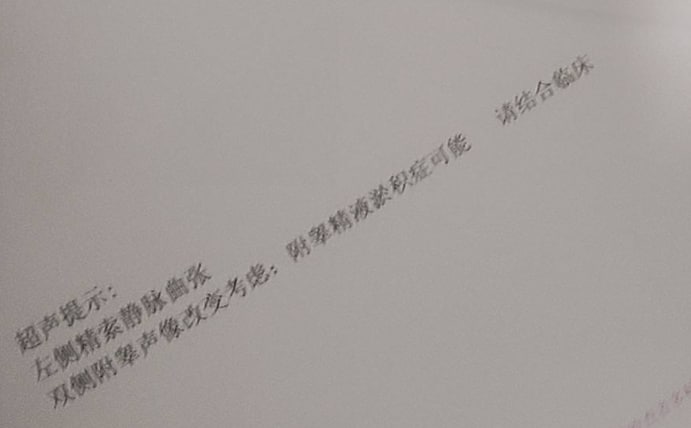 超声提示：
左侧精索静脉曲张
双侧附睾声像改变考虑：附睾精液淤积症可能 请结合临床